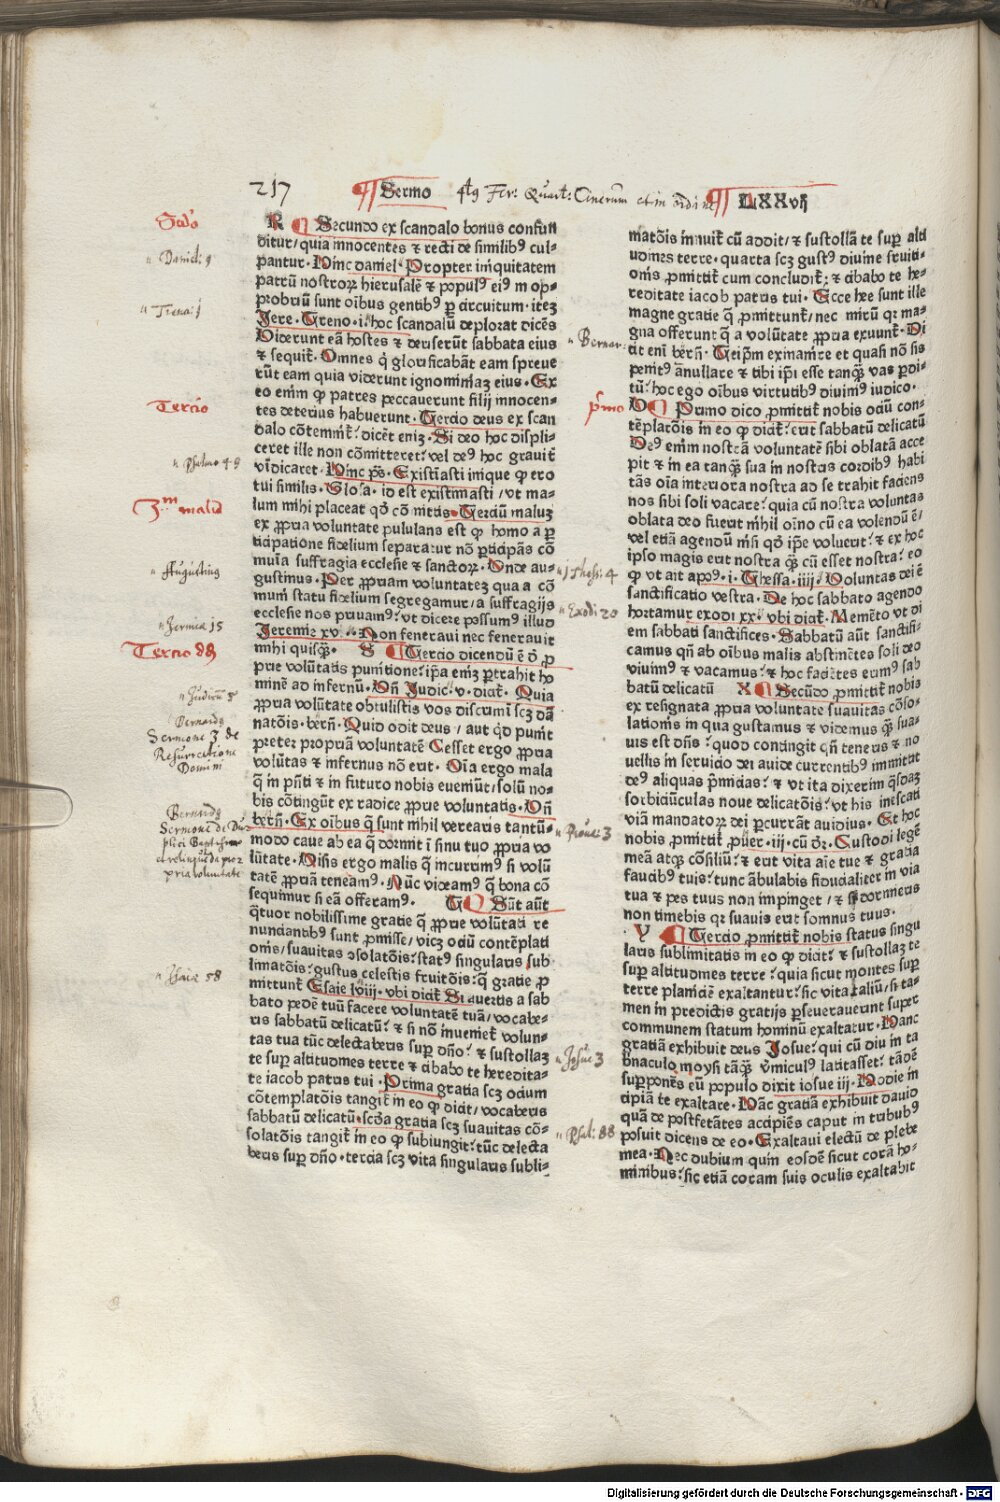 217 Sermo 4tꝰ Fer: Quart: Cinerum LXXvij
Scdo
Daniel: 9
Trena: j
Tercio
Psalmo 49
3m malū
Augustinꝰ
Jermia 15
Tercio
Judicū 5
Bernardꝰ
Sermone 3 de
Resurrectione
Domini
Bernardꝰ
Isaia 58
R Secundo ex scandalo bonus confun
ditur/quia innocentes ⁊ recti de similibꝰ cul-
pantur. Hinc daniel. Propter iniquitatem
patrū nostroꝝ hierusalē ⁊ populꝰ eiꝰ in op-
probriū sunt oībus gentibꝰ ꝑ circuitum. iteꝫ
Jere. Treno. i. hoc scandalū deplorat dicēs
Viderunt eā hostes ⁊ deriserūt sabbata eius
⁊ sequit̄. Omnes q̇ glorificabāt eam spreue
rūt eam quia viderunt ignominiaꝫ eius. Ex
eo enim ꝙ patres peccauerunt filij innocen-
tes deterius habuerunt. Tercio deus ex scan
dalo cōtemnit̄. dicēt eniꝫ. Si deo hoc displi-
ceret ille non cōmitteret: vel deꝰ hoc grauit̄
vīdicaret. Hinc ps̄. Existīasti inique ꝙ ero
tui similis. Glosa. id est existimasti/vt ma-
lum mihi placeat qd̄ cōmittis. Terciū maluꝫ
ex ꝓpria voluntate pululans est ꝙ homo a ꝑ
ticipatione fidelium separatur nō ꝑticipās cō
munia suffragia ecclesie ⁊ sanctoꝝ. Vnde au-
gustinus. Per ꝓpriam voluntateꝫ qua a cō
muni statu fidelium segregamur/a suffragijs
ecclesie nos priuamꝰ: vt dicere possumꝰ illud
Jeremie xv. Non feneraui nec fenerauit
mihi quisq̄. S Tercio dicendū ē d̓ ꝓ
prie volūtatis punitione: ip̄a eniꝫ ꝑtrahit ho
minē ad infernū. Vn̄ Judic. v. dicit̄. Quia
ꝓpria volūtate obtulistis vos discrimī scꝫ dā
natōis. bern̄. Quid odit deus/aut qd̄ punit
preter propriā voluntatē Cesset ergo ꝓpria
volūtas ⁊ infernus nō erit. Oīa ergo mala
q̄ in pn̄ti ⁊ in futuro nobis eueniūt/solū no-
bis cōtingūt ex radice ꝓprie voluntatis. Vn̄
bern̄. Ex oībus q̄ sunt nihil verearis tantū-
modo caue ab ea q̄ dormit ī sinu tuo ꝓpria vo
lūtate. Nisis ergo malis q̄ incurrimꝰ si volū
tatē ꝓpriā teneamꝰ. Nūc videamꝰ q̄ bona cō
sequimur si eā offeramꝰ. T Sūt aūt
q̄tuor nobilissime gratie q̄ ꝓprie volūtati re
nunciantibꝰ sunt ꝓmisse/vicꝫ odiū contēplati
onis/suauitas ↄsolatōis: statꝰ singularis sub
limatōis: gustus celestis fruitōis: q̄ gratie ꝓ
mittunt̄ Esaie lviij. vbi dicit̄ Si auertis a sab
bato pedē tuū facere voluntatē tuā/vocabe-
ris sabbatū delicatū: ⁊ si nō inueniet̄ volun-
tas tua tūc delectaberis suꝑ dn̄o: ⁊ sustollaꝫ
te suꝑ altitudines terre ⁊ cibabo te heredita-
te iacob patris tui. Prima gratia scꝫ odium
cōtemplatōis tangit̄ in eo ꝙ dicit/vocaberis
sabbatū delicatū. scd̄a gratia scꝫ suauitas cō-
solatōis tangit̄ in eo ꝙ subiungit: tūc delecta
beris suꝑ dn̄o. tercia scꝫ vita singularis subli-
Bernar:
pimo
1 Thess: 4
Exodi 20
Prouer: 3
Josue 3
Psal: 88
matōis innuit̄ cū addit/⁊ sustollā te suꝑ alti
tudines terre. quarta scꝫ gustꝰ diuine fruiti-
onis ꝓmittit̄ cum concludit̄: ⁊ cibabo te he-
reditate iacob patris tui. Ecce hee sunt ille
magne gratie q̄ ꝓmittunt̄/nec mirū qr̄ ma-
gna offerunt q̄ a volūtate ꝓpria exuunt̄. Di
cit enī bern̄. Teip̄m exinanire et quasi nō sis
penitꝰ ānullare ⁊ tibi ip̄i esse tanq̄ vas ꝑdi-
tū: hoc ego oībus virtutibꝰ diuinū iudico.
V Primo dico ꝓmittit̄ nobis odiū con-
tēplatōis in eo ꝙ dicit̄: erit sabbatū delicatū
Deꝰ enim nostrā voluntatē sibi oblatā acce
pit ⁊ in ea tanq̄ sua in nostris cordibꝰ habi
tās oīa interiora nostra ad se trahit faciens
nos sibi soli vacare: quia cū nostra voluntas
oblata deo fuerit nihil oīno cū ea volendū ē/
vel etiā agendū nisi qd̄ ip̄e voluerit: ⁊ ex hoc
ipso magis erit nostra q̄ cū esset nostra: eo
ꝙ vt ait apo̅ꝰ. i. Thessa. iiij. Voluntas dei ē
sanctificatio vestra. De hoc sabbato agendo
hortamur exodi xx. vbi dicit̄. Memēto vt di
em sabbati sanctifices. Sabbatū aūt sanctifi-
camus qn̄ ab oībus malis abstinētes soli deo
viuimꝰ ⁊ vacamus: ⁊ hoc faciētes erimꝰ sab
batū delicatū X Secūdo ꝓmittit̄ nobis
ex resignata ꝓpria voluntate suauitas cōso-
lationis in qua gustamus ⁊ videmus q̄ sua-
uis est dn̄s: quod contingit qn̄ teneris ⁊ no
uellis in seruicio dei auide currentibꝰ immittit
deꝰ aliquas ṗmicias: ⁊ vt ita dixerim q̄sdaꝫ
sorbiciūculas noue delicatōis: vt his inescati
viā mandatoꝝ dei ꝑcurrāt auidius. Et hoc
nobis ꝓmittit̄ ꝓuer. iij. cū dr̄. Custodi legē
meā atqꝫ cōsiliū: ⁊ erit vita aīe tue ⁊ gratia
faucibꝰ tuis: tunc ābulabis fiducialiter in via
tua ⁊ pes tuus non impinget/⁊ si dormieris
non timebis qr̄ suauis erit somnus tuus.
Y Tercio ꝓmittit̄ nobis status singu
laris sublimitatis in eo ꝙ dicit: ⁊ sustollaꝫ te
suꝑ altitudines terre: quia sicut montes suꝑ
terre planiciē exaltantur: sic vita taliū/si ta-
men in predictis gratijs ꝑseuerauerint super
communem statum hominū exaltatur. Hanc
gratiā exhibuit deus Josue: qui cū diu in ta
b̄naculo moysi tāq̄ v̄miculꝰ latitasset: tādē
suꝑponēs eū populo dixit iosue iij. Hodie in
cipiā te exaltare. Hāc gratiā exhibuit dauid
quā de postfetātes accipiēs caput in tribubꝰ
posuit dicens de eo. Exaltaui electū de plebe
mea. Nec dubium quin eosdē sicut corā ho-
minibus: sic etiā coram suis oculis exaltabit
Digitalisierung gefördert durch die Deutsche Forschungsgemeinschaft - DFG